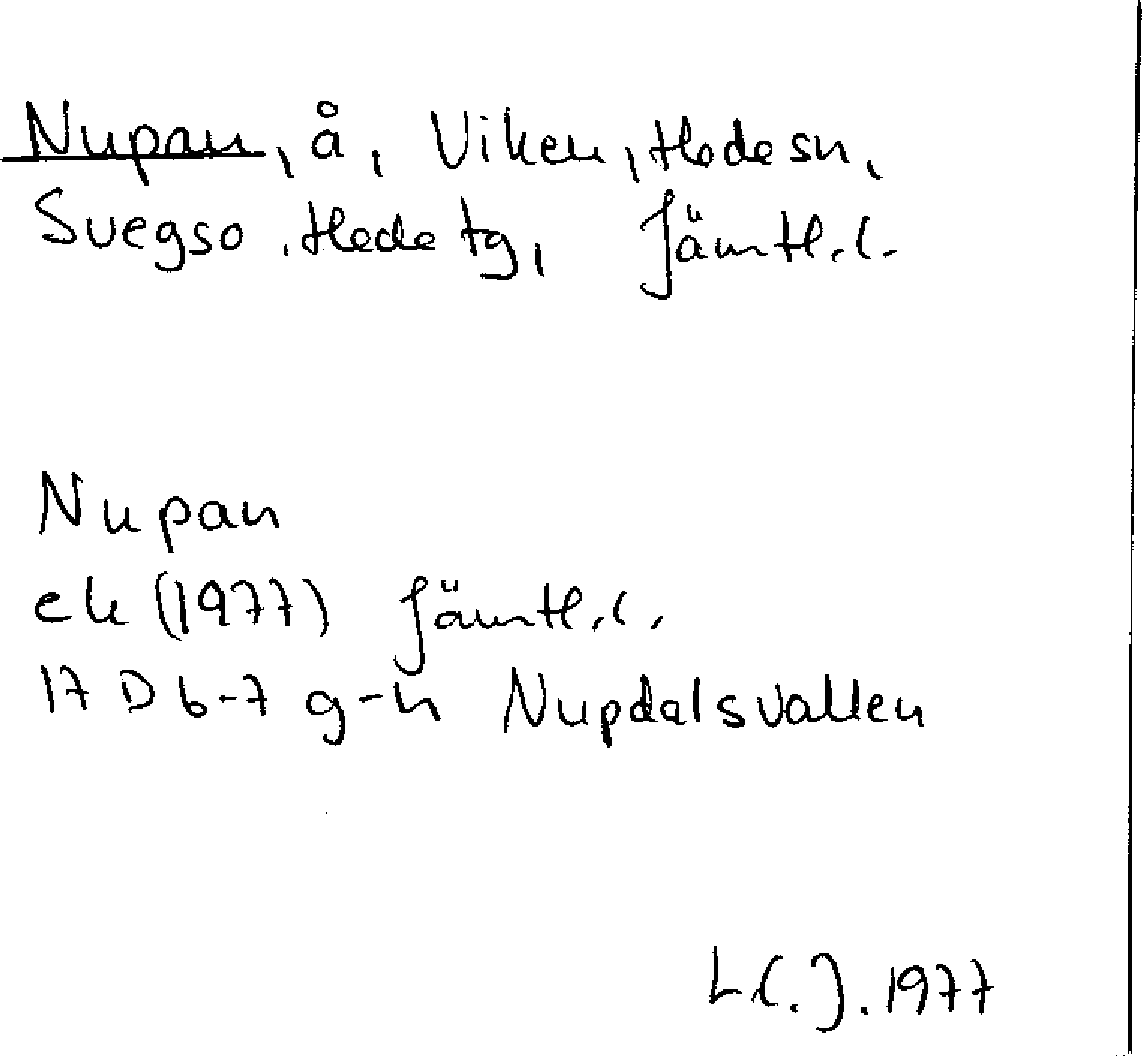 Nupan, å, Viken, Hede sn,
Svegs o. Hede tg, Jämtl. l.
Nupan
ek (1977) Jämtl. l.
17 D 6-7 g-h Nupdalsvallen
1977